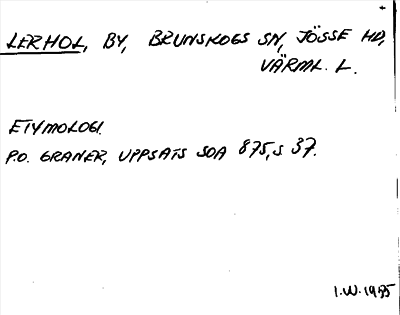 LERHOL, BY, BRUNSKOGS SN, JÖSSE HD,
VÄRML. L.
ETYMOLOGI.
P.O. GRANER, UPPSATS SOA 875, S 37.
I.W. 1955